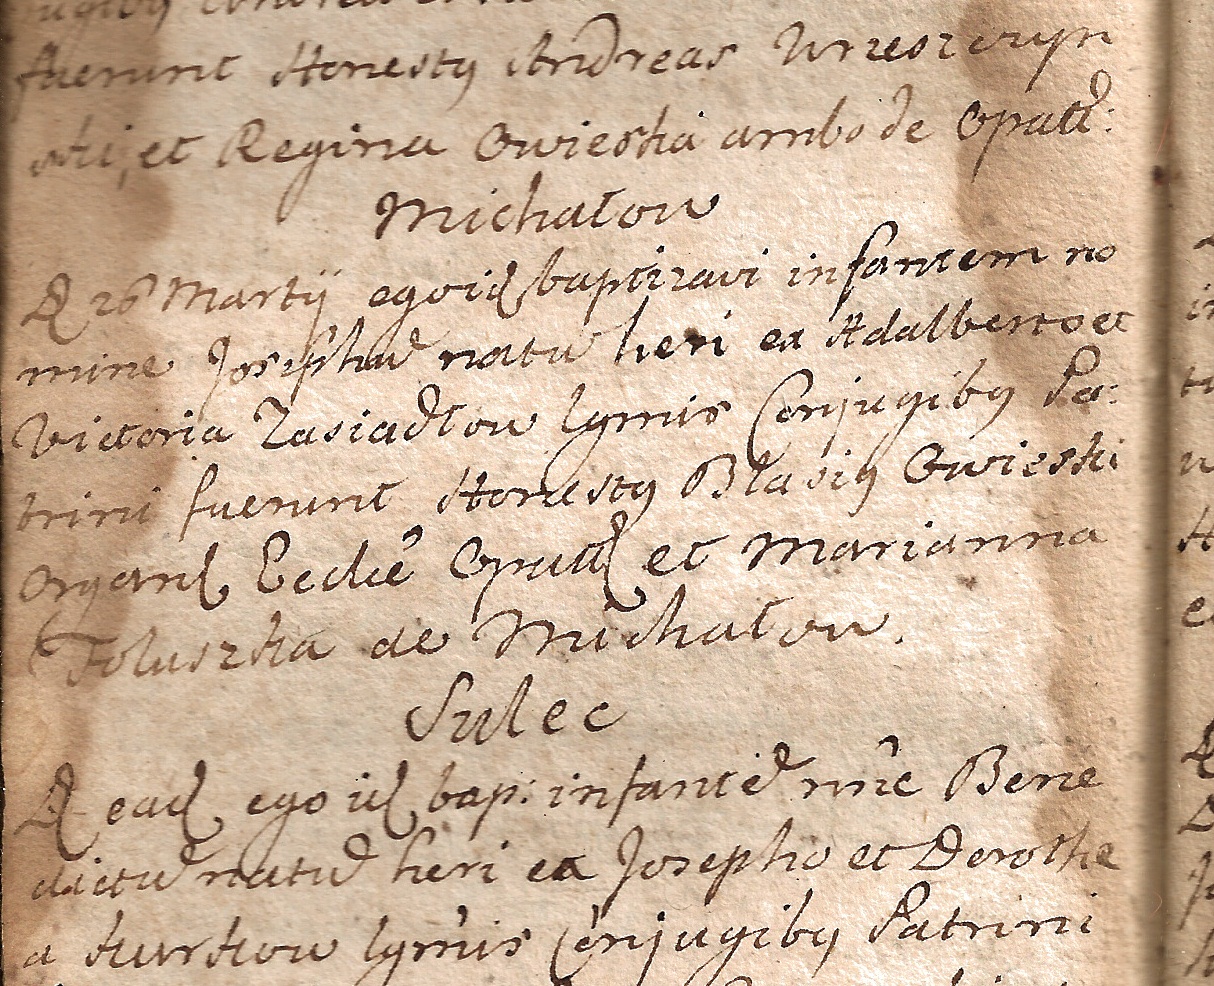 fuerunt Honesty Andreas Wrzeszczyn
ski, et Regina Gwieska ambo de Opatt:
Michałow
D 26 Martij ego id baptizavi infantem no
mine Josephū natū heri ex Adalberto et
Victoria Zasiadłow lgmis Conjugiby Pa:
trini fuerunt Honesty Blasiy Gwieski
Organ Eccliē Opatt et Marianna
Toluszka de Michałow.
Sulec
D ead ego id bap: infantē nnē Bene
dictū natū heri ex Josepho et Dorothe
a Kurkow lgmis Conjugiby Patrini